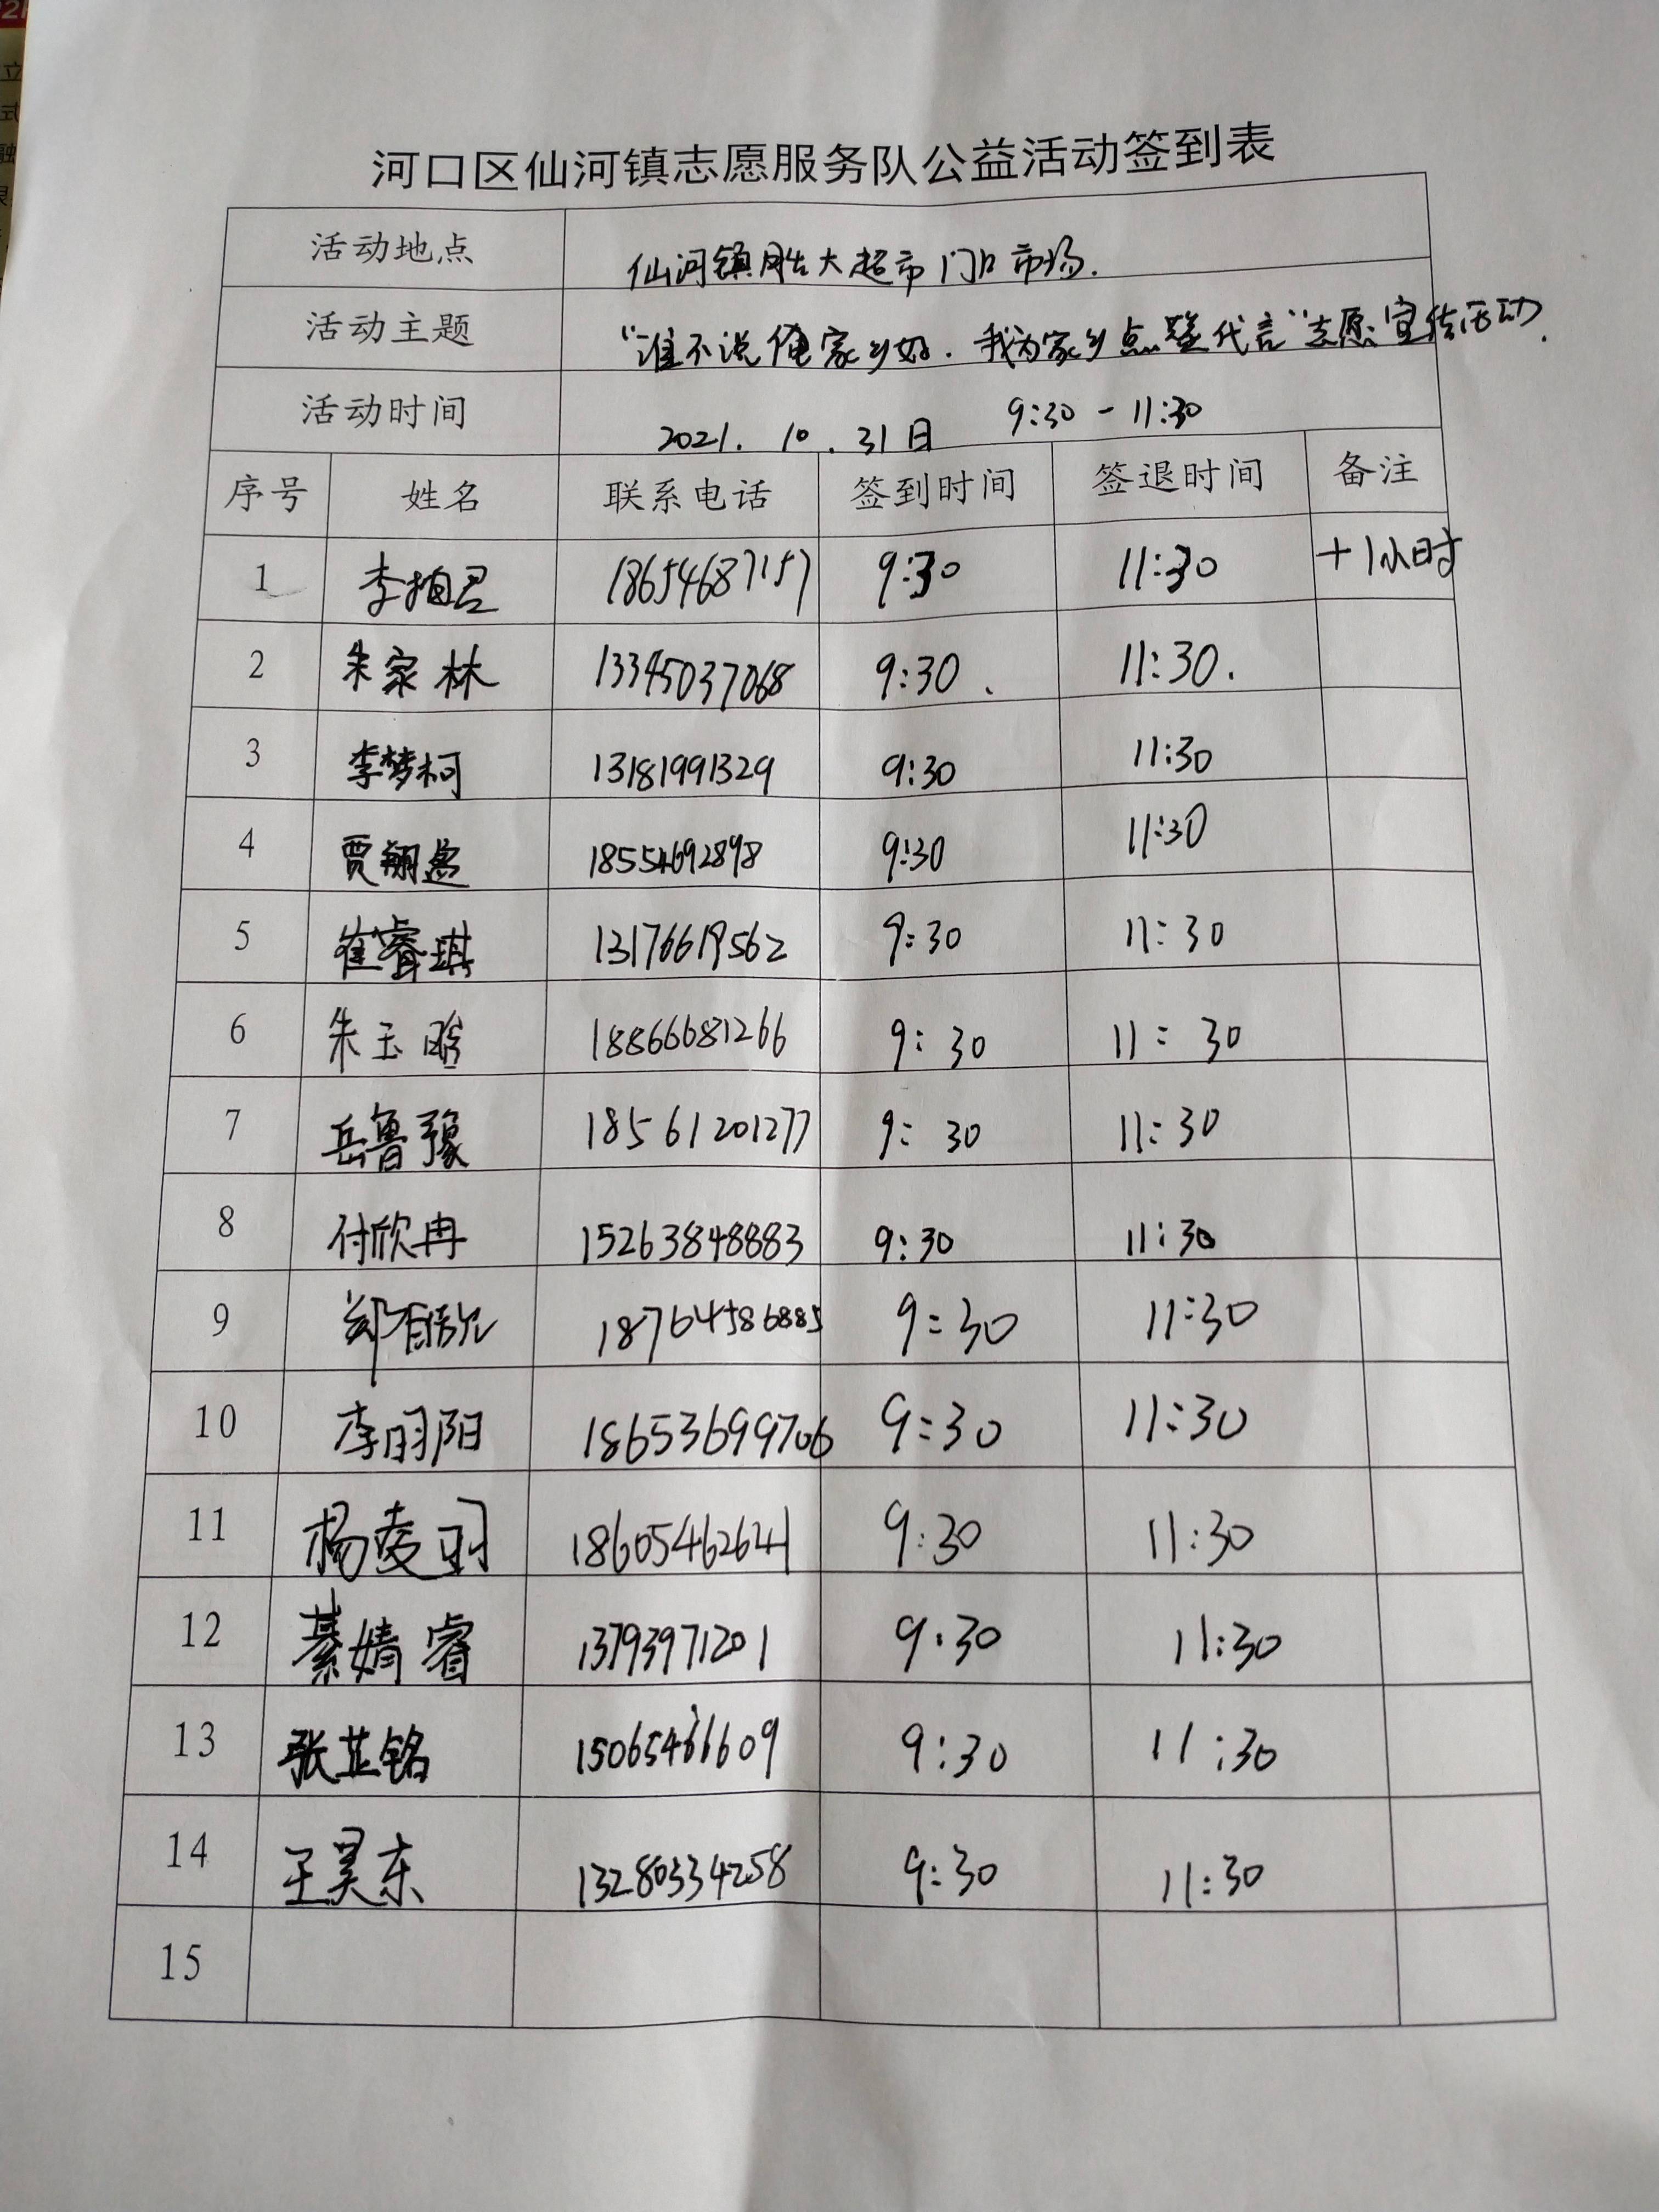 河口区仙河镇志愿服务队公益活动签到表
活动地点 仙河镇胜大超市门口市场.
活动主题 "谁不说俺家乡好.我为家乡点赞代言"志愿宣传活动.
活动时间 2021.10.31日 9:30-11:30
序号 姓名 联系电话 签到时间 签退时间 备注
1 李抽君 18654687157 9:30 11:30 +1小时
2 朱家林 13345037068 9:30. 11:30.
3 李梦柯 13181991329 9:30 11:30
4 贾翔 18554692898 9:30 11:30
5 崔睿琪 13176619562 9:30 11:30
6 朱玉晗 18866681266 9:30 11:30
7 岳鲁豫 18561201277 9:30 11:30
8 付欣冉 15263848883 9:30 11:30
9 郑 18764586885 9:30 11:30
10 李明阳 18653699706 9:30 11:30
11 杨凌羽 18605462641 9:30 11:30
12 綦婧睿 13793971201 9:30 11:30
13 张芷铭 15065466609 9:30 11:30
14 王昊东 13280334258 9:30 11:30
15